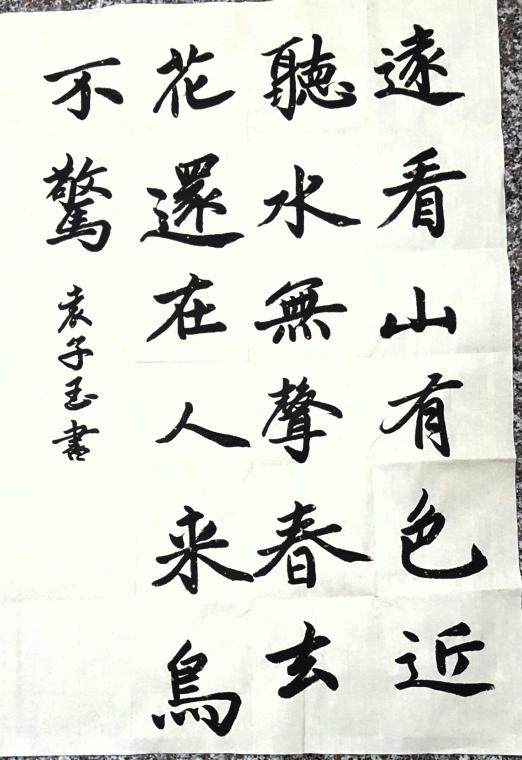 遠看山有色近
聽水無聲春去
花還在人来鳥
不驚
袁子玉書